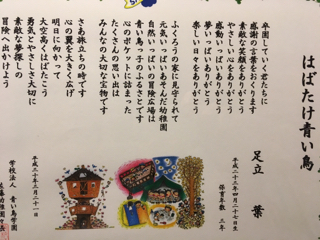 はばたけ青い鳥
足立 葉
平成二十三年四月二十七日生
保育年数 三年
卒園していく君たちに
感謝の言葉をおくります
素敵な笑顔をありがとう
やさしい心をありがとう
感動いっぱいありがとう
夢いっぱいありがとう
楽しい日々をありがとう
ふくろうの家に見守られて
元気いっぱいあそんだ幼稚園
自然いっぱいの冒険広場は
青い鳥っ子のふるさとです
心のポケットに詰まった
たくさんの思い出は
みんなの大切な宝物です
さあ旅立ちの時です
心の翼を大きく広げ
明日に向かって
大空高くはばたこう
勇気とやさしさ大切に
素敵な夢探しの
冒険へ出かけよう
平成三十年三月二十一日
学校法人 青い鳥学園